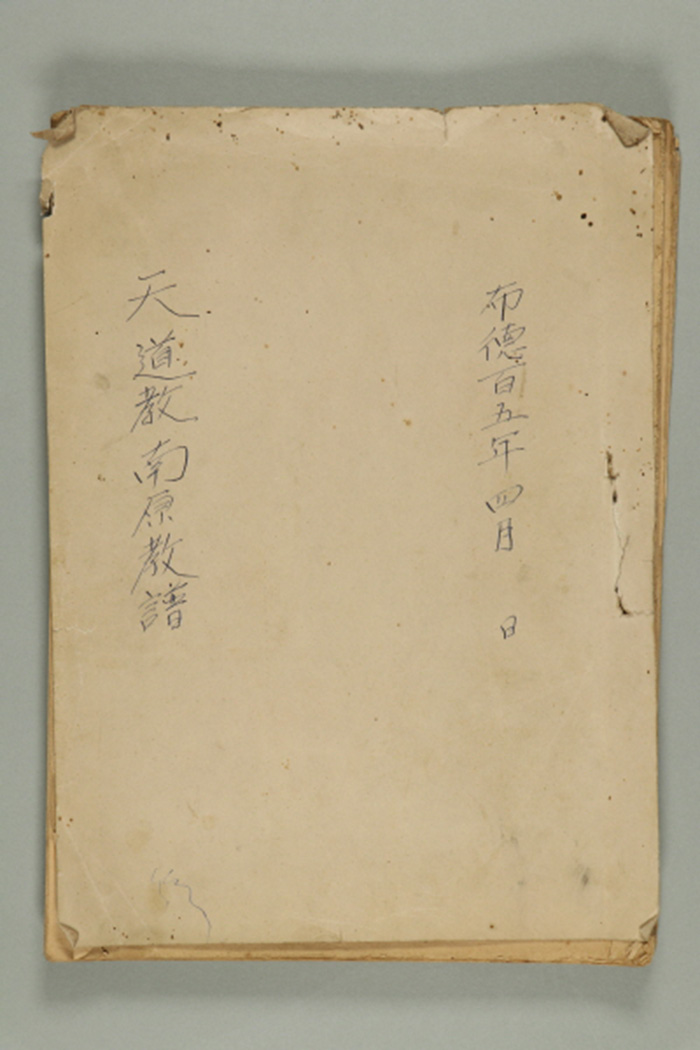 布德百五年四月 日
天道教南原教譜